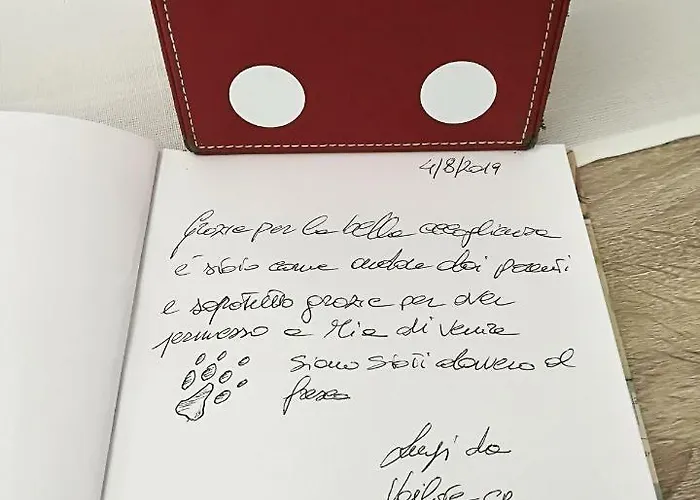 4/8/2019
Grazie per la bella accoglienza
è stato come andare dai parenti
e soprattutto grazie per aver
permesso a Mia di venire
siamo stati davvero al
fresco
Luigi da